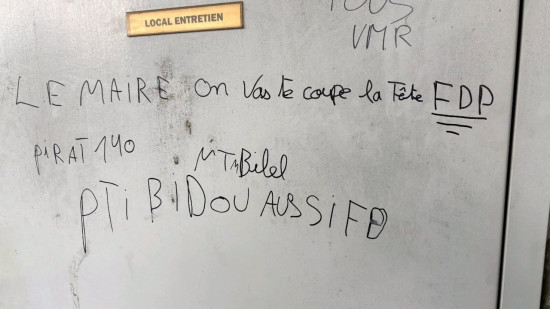 LOCAL ENTRETIEN
TOUS
VMR
LE MAIRE on Vas te coupe la Tête FDP
PiRAT 140
MTn Bilel
PTi BIDOU AUSSI FD